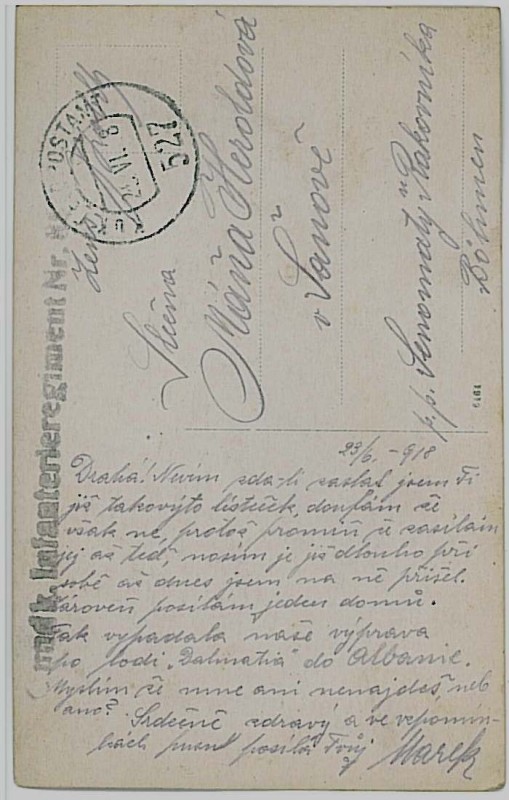 527
VI. 8
und k. Infanterieregiment Nr.
Slečna
Máňa Heroldová
v Šanově
p. p. Senomaty u Rakovníka
Böhmen
9464
23/6. - 918
Drahá! Nevím zda-li zaslal jsem Ti
již takovýto lísteček, doufám že
však ne, protož promiň že zasílám
jej až teď, nosím je již dlouho při
sobě až dnes jsem na ně přišel.
Zároveň posílám jeden domů.
Tak vypadala naše výprava
po lodi „Dalmatia" do Albanie.
Myslím že mne ani nenajdeš neb
ano? Srdečně zdravý a ve vzpomín-
kách posílá Tvůj
Marek